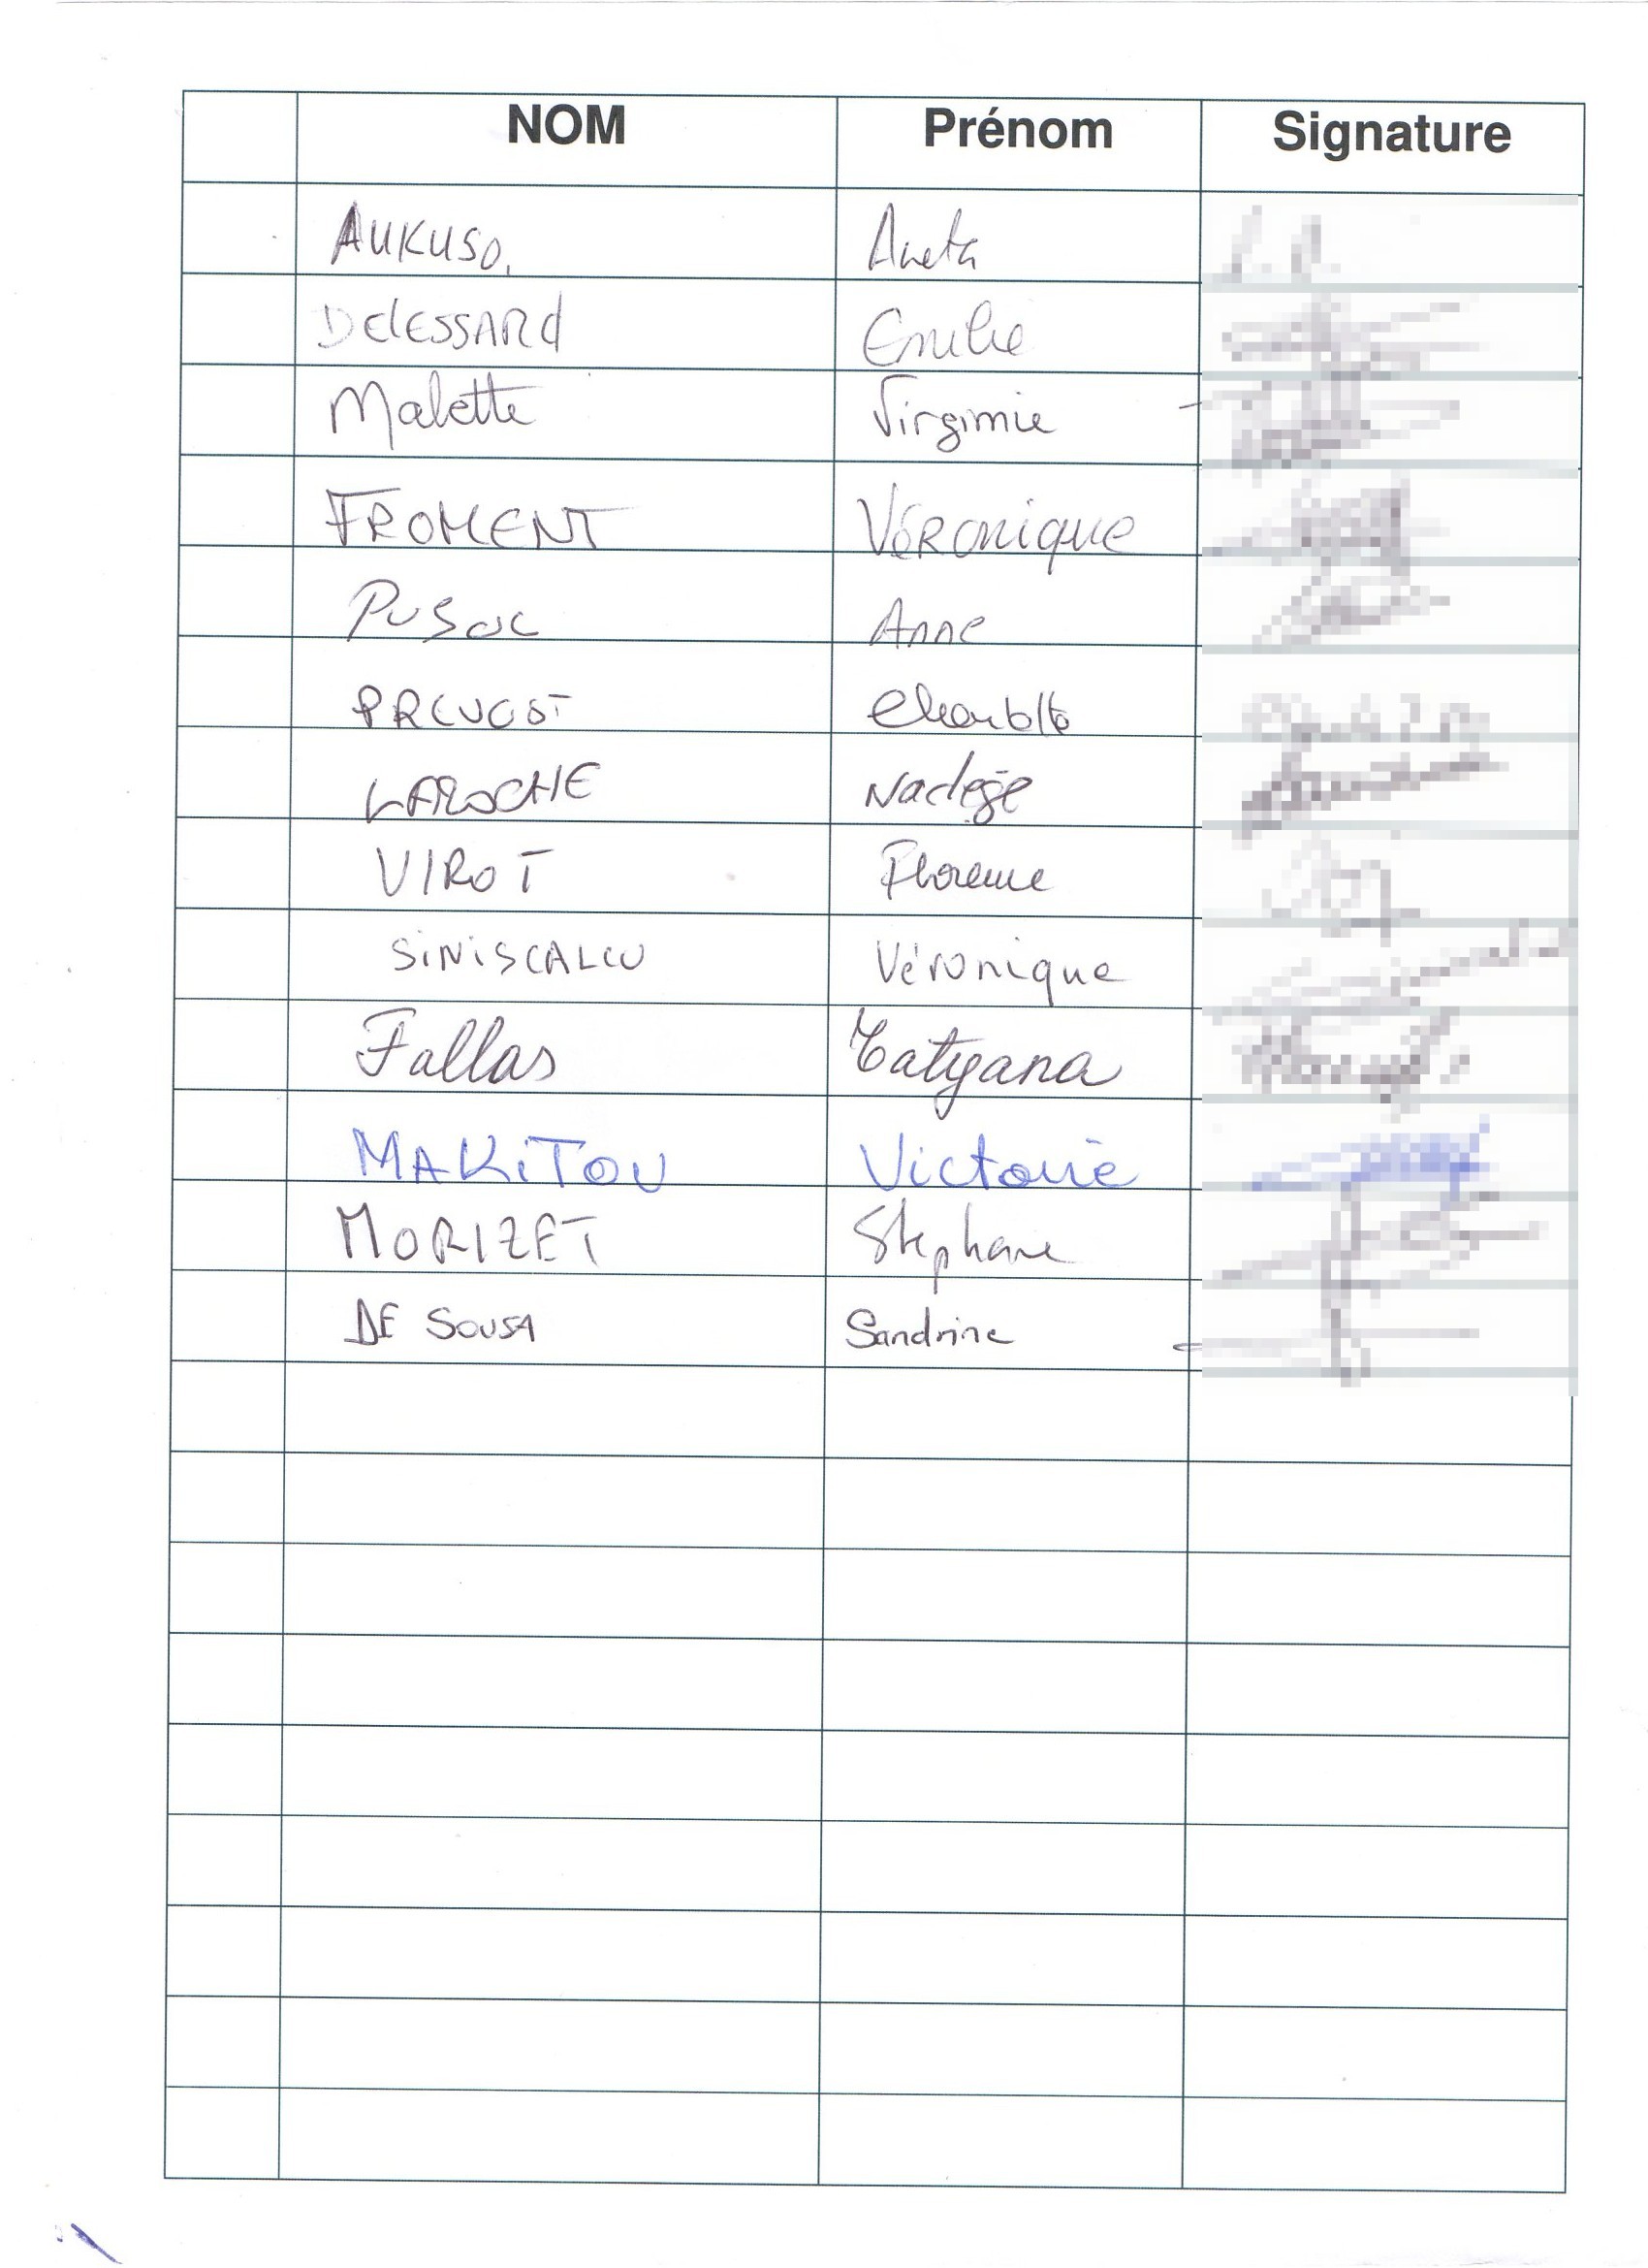 NOM Prénom Signature
AUKUSO. Aneta
DElESSARd Emilie
Malette Virginie
FROMENT VéRonique
Anne
PREVOST Charlotte
LAROCHE Nadège
VIROT Florence
SiNiSCALCO Véronique
Fallas Tatyana
MAKiTOU Victoire
MORIZET Stephane
DE SOUSA Sandrine